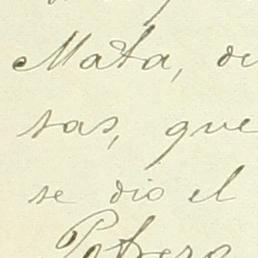 Mata, de
sas, que
se dio el
Potrero